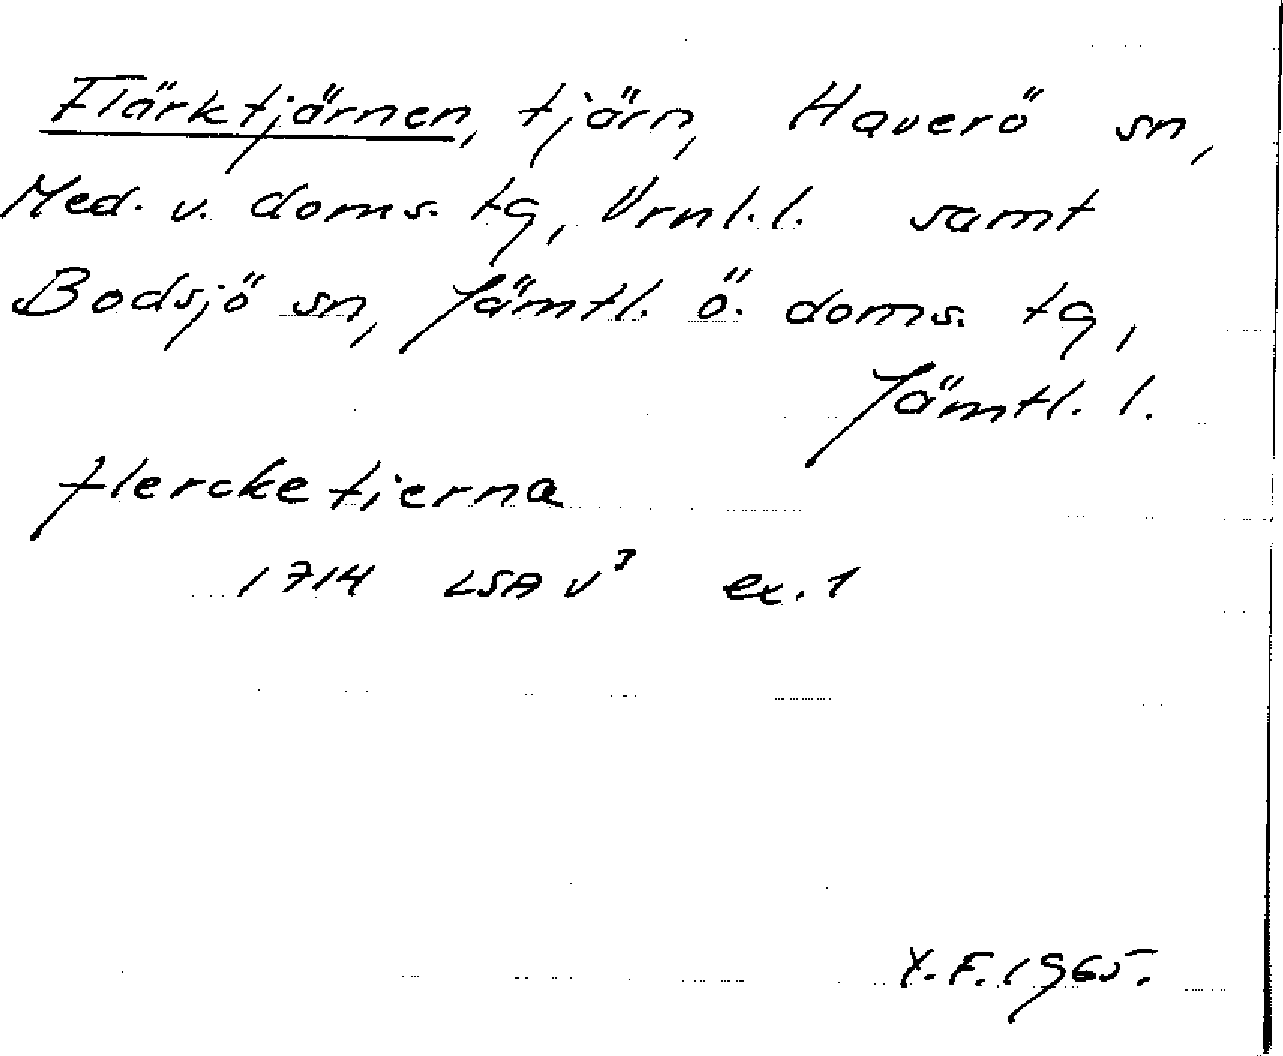 Flärktjärnen, tjärn, Haverö sn,
Med. v. doms. tg, Vrnl. l. samt
Bodsjö sn, Jämtl. ö. doms. tg,
Jämtl. l.
flercketierna
1714 LSA v³ ex. 1
Y. F. 1965.